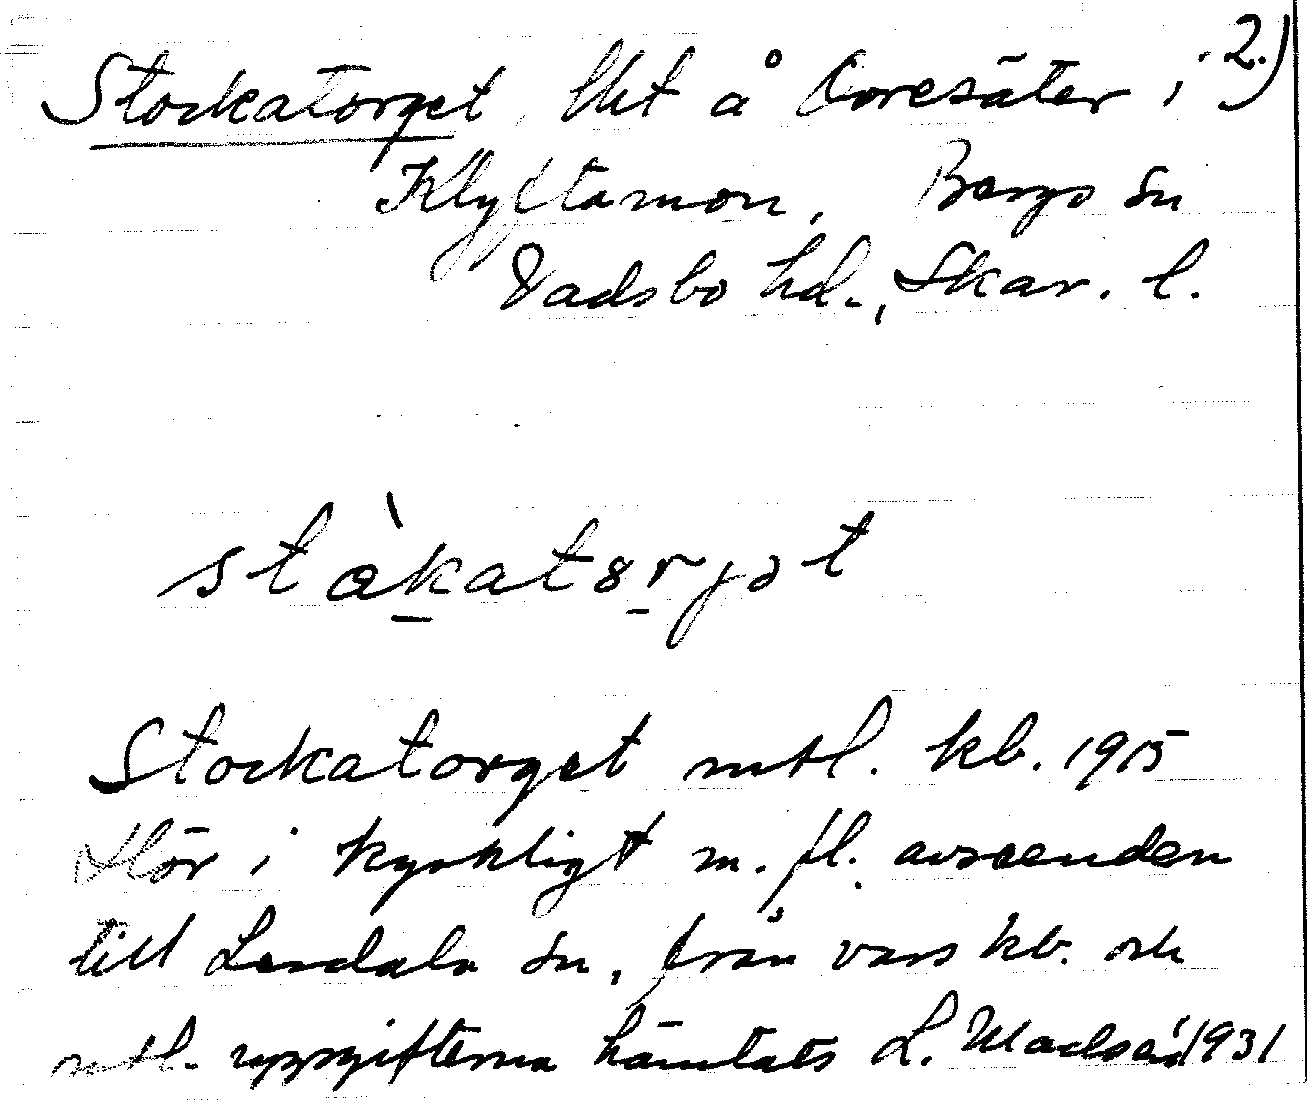 2.)
Stockatorget, lht å Coresäter i
Klyftamon, Bergs sn
Vadsbo hd., Skar. l.
stɑ̀k̠atɵr̠jət
Stockatorget mtl. kb. 1915
Hör i kyrkligt m. fl. avseenden
till Lerdala sn, från vars kb. och
mtl. uppgifterna hämtats L. 1931